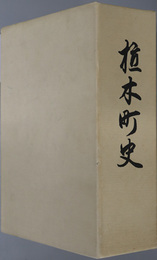 植木町史